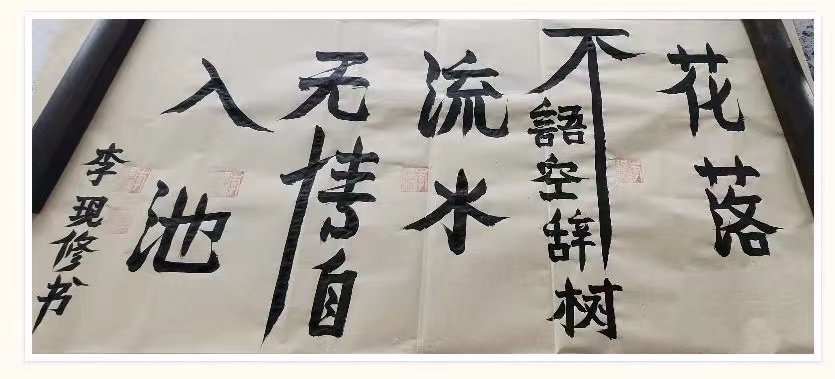 花落
不語空辞树
流水
无情自
入池
李现修书